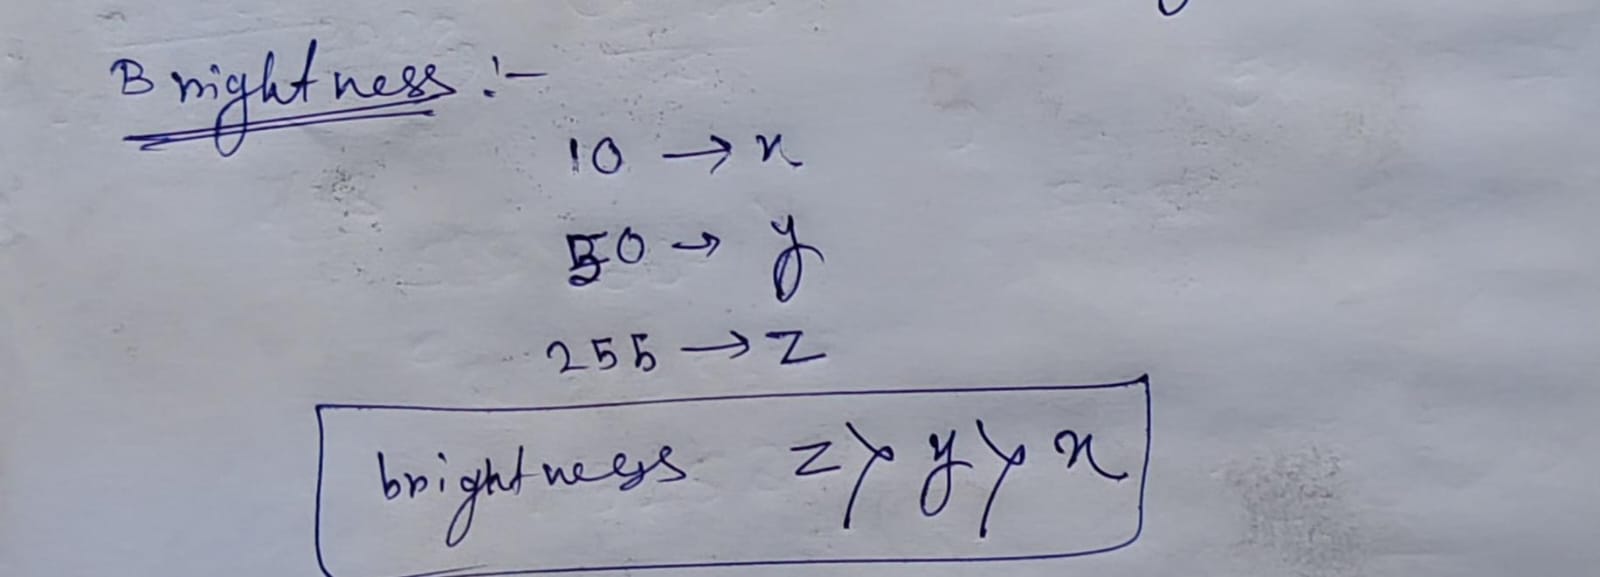 Brightness :-
10 → x
50 → y
255 → z
brightness z > y > x